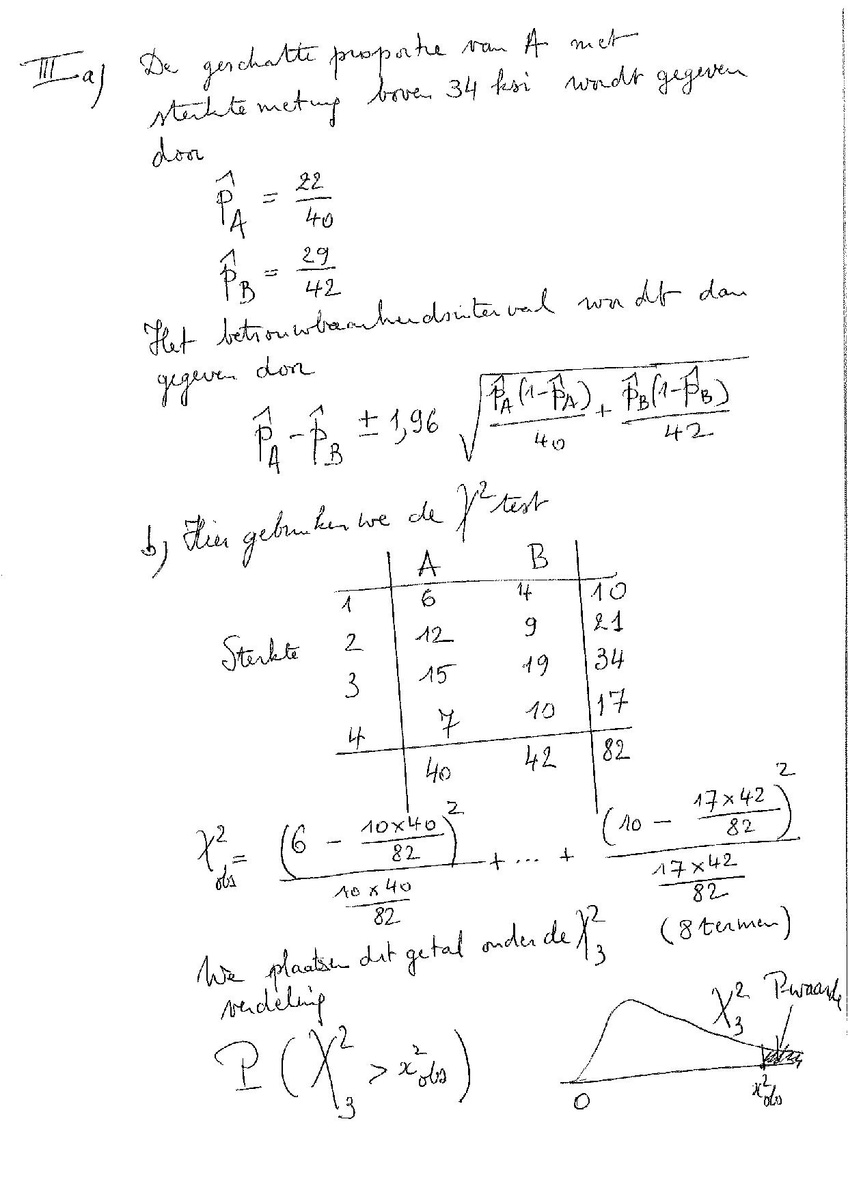 III a) De geschatte proportie van A met
sterktemeting boven 34 ksi wordt gegeven
door
p̂_A = 22/40
p̂_B = 29/42
Het betrouwbaarheidsinterval wordt dan
gegeven door
p̂_A - p̂_B ± 1,96 √( p̂_A(1-p̂_A)/40 + p̂_B(1-p̂_B)/42 )
b) Hier gebruiken we de χ² test
A B
1 6 4 10
Sterkte 2 12 9 21
3 15 19 34
4 7 10 17
40 42 82
χ²_obs = (6 - 10×40/82)² / (10×40/82) + ... + (10 - 17×42/82)² / (17×42/82)
(8 termen)
We plaatsen dit getal onder de χ²_3
verdeling
P(χ²_3 > x²_obs)
χ²_3 P-waarde
0 x²_obs